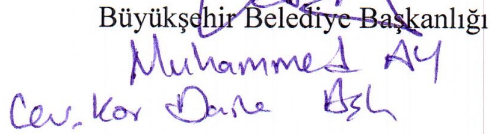 Büyükşehir Belediye Başkanlığı
Muhammed AY
Cev. Kor Daire Bşk